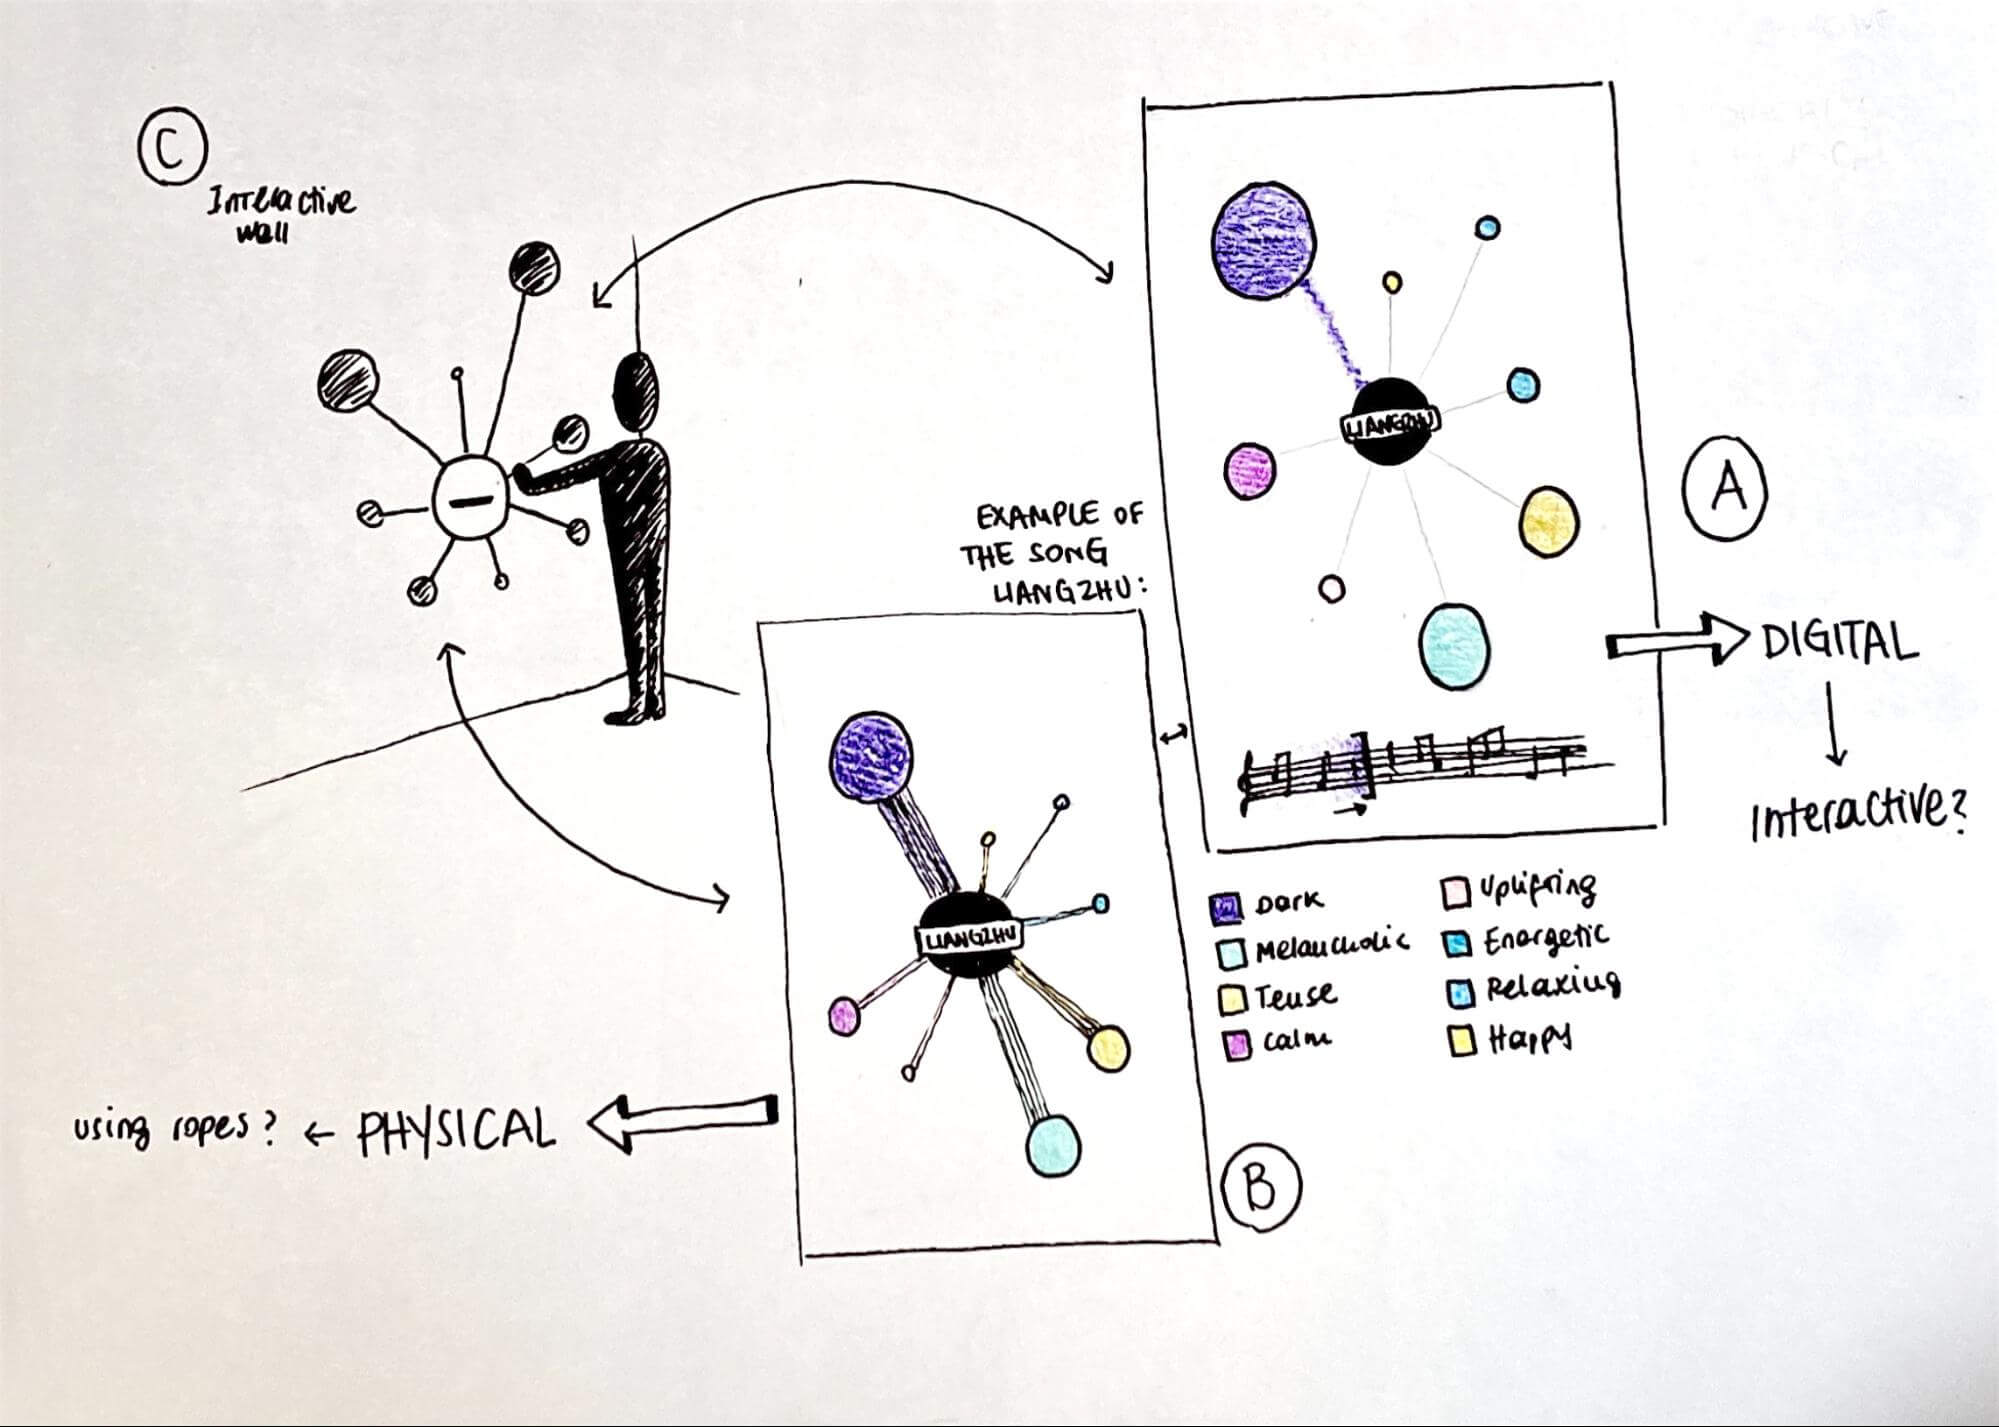 C
Interactive
wall
LIANGZHU
A
EXAMPLE OF
THE SONG
LIANGZHU:
DIGITAL
Interactive?
Dark
Melancholic
Tense
Calm
Uplifting
Energetic
Relaxing
Happy
LIANGZHU
using ropes? ← PHYSICAL
B